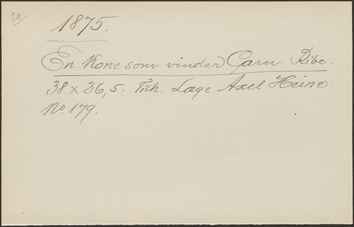 1875.
En Kone som vinder Garn Ribe.
38 x 36,5. Tilh. Læge Axel Heine
No 179.